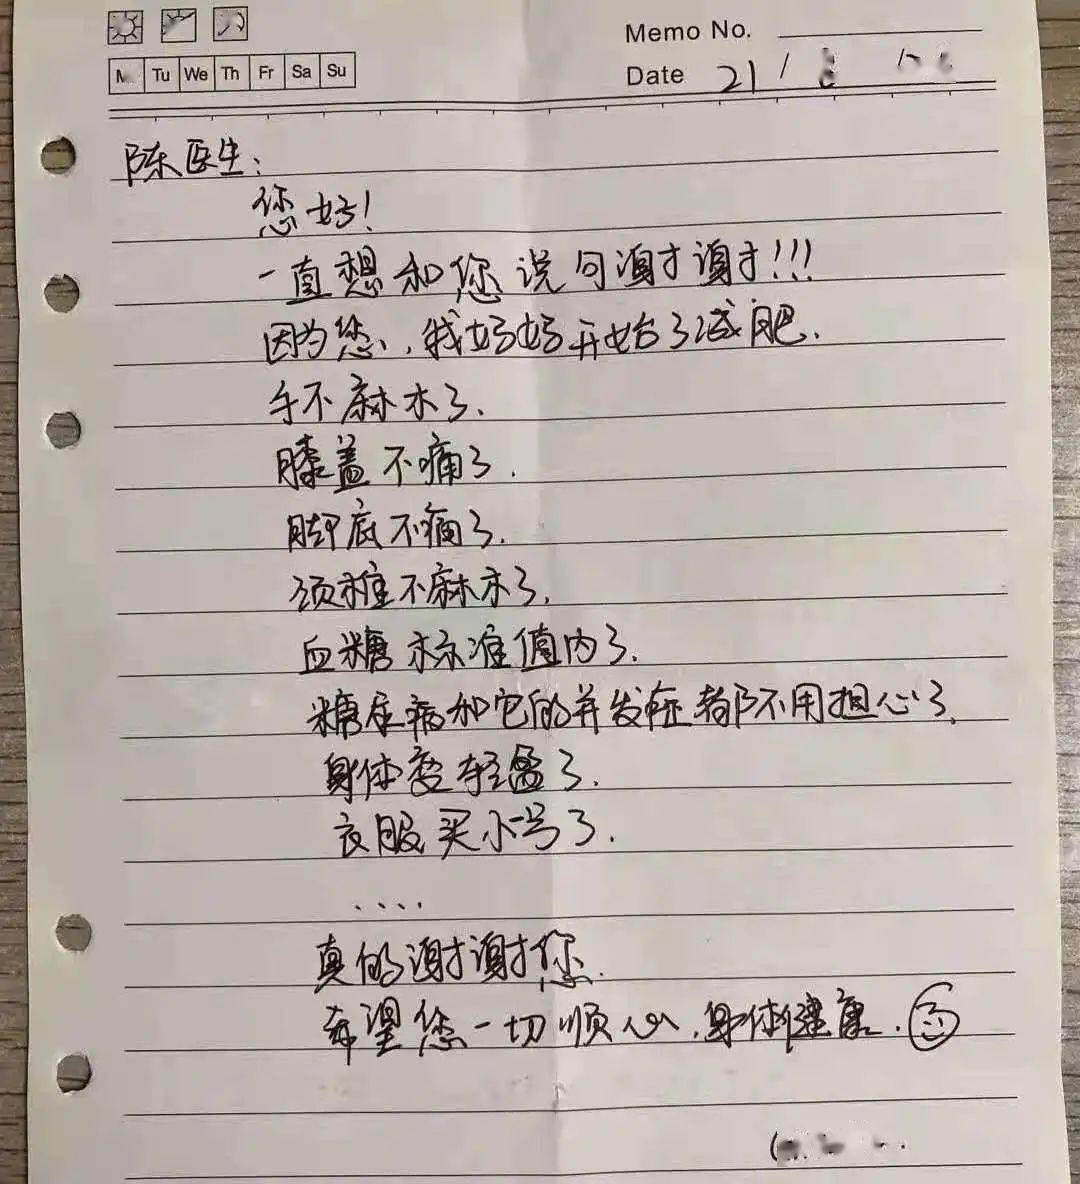 Memo No.
Tu We Th Fr Sa Su
Date 21/
陈医生：
您好！
一直想和您说句谢谢！！！
因为您，我好好开始了减肥.
手不麻木了.
膝盖不痛了.
脚底不痛了.
颈椎不麻木了.
血糖标准值内了.
糖尿病和它的并发症都不用担心了.
身体变轻盈了.
衣服买小号了.
....
真的谢谢您.
希望您一切顺心.身体健康.